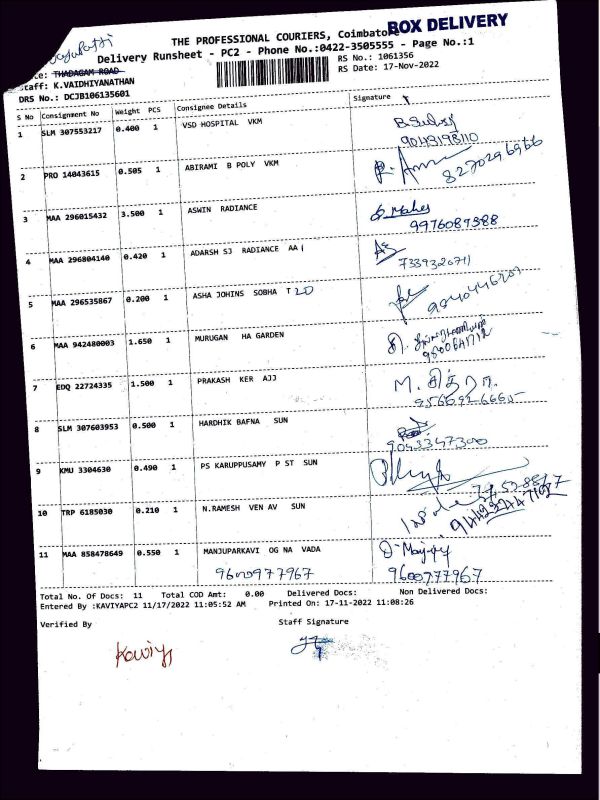 BOX DELIVERY
THE PROFESSIONAL COURIERS, Coimbatore
Delivery Runsheet - PC2 - Phone No.:0422-3505555 - Page No.:1
RS No.: 1061356
THADAGAM ROAD
RS Date: 17-Nov-2022
Staff: K.VAIDHIYANATHAN
DRS No.: DCJB106135601
S No Consignment No Weight PCS Consignee Details Signature
1 SLM 307553217 0.400 1 VSD HOSPITAL VKM
9043198110
2 PRO 14043615 0.505 1 ABIRAMI B POLY VKM
8270296966
3 MAA 296015432 3.500 1 ASWIN RADIANCE
9976087388
4 MAA 296804140 0.420 1 ADARSH SJ RADIANCE AA
7339320711
5 MAA 296535867 0.200 1 ASHA JOHINS SOBHA T 20
6 MAA 942480003 1.650 1 MURUGAN HA GARDEN
7 EDQ 22724335 1.500 1 PRAKASH KER AJJ M. சித்ரா.
8 SLM 307603953 0.500 1 HARDHIK BAFNA SUN
9043347300
9 KMU 3304630 0.490 1 PS KARUPPUSAMY P ST SUN
10 TRP 6185030 0.210 1 N.RAMESH VEN AV SUN
11 MAA 858478649 0.550 1 MANJUPARKAVI OG NA VADA
9600977967 9600777967
Total No. Of Docs: 11 Total COD Amt: 0.00 Delivered Docs: Non Delivered Docs:
Entered By :KAVIYAPC2 11/17/2022 11:05:52 AM Printed On: 17-11-2022 11:08:26
Verified By Staff Signature
Kaviya